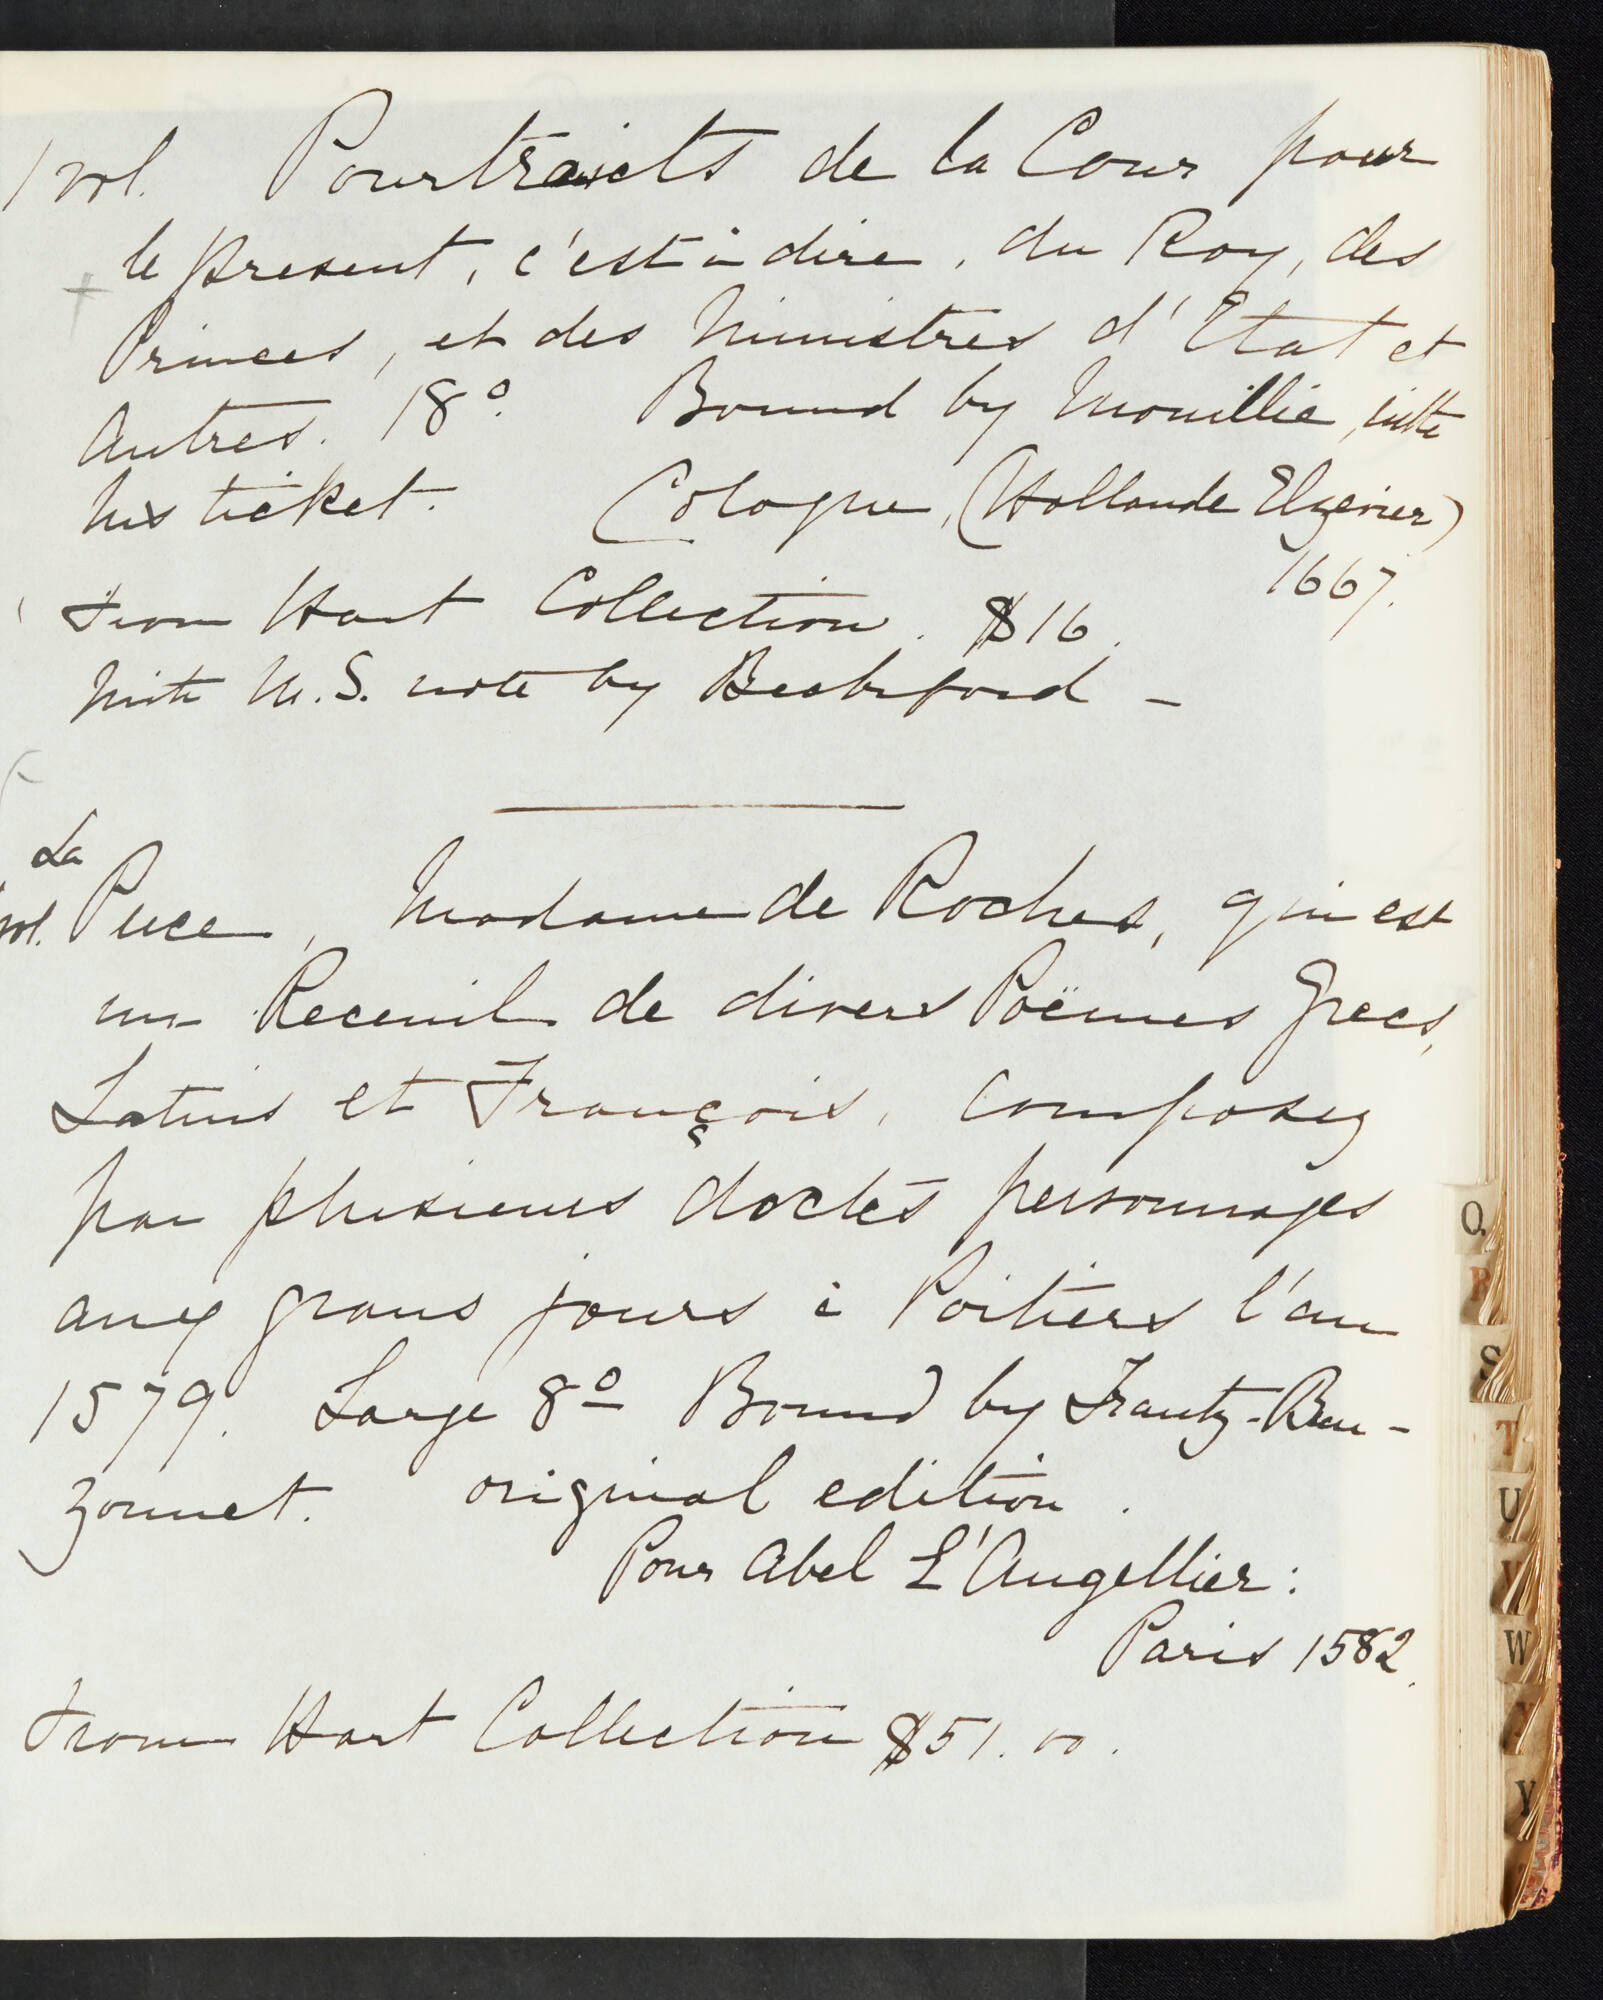 1 vol. Pourtraicts de la Cour pour
le present, c'est à dire, du Roy, des
Princes, et des Ministres d'Etat et
Autres. 18º. Bound by Mouillie, with
his ticket. Cologne, (Hollande Elzevier)
1667.
From Hart Collection. $16.
With M.S. note by Beckford –
La
vol. Puce, Madame de Roches, qui est
un Receuil de divers Poëmes Grecs,
Latins et François, composez
par plusieurs doctes personnages
aux grans jours à Poitiers l'an
1579. Large 8º Bound by Trautz-Bau-
zonnet. original edition.
Pour Abel L'Angellier:
Paris 1582.
From Hart Collection $51.00.
Q
R
S
T
U
V
W
X
Y